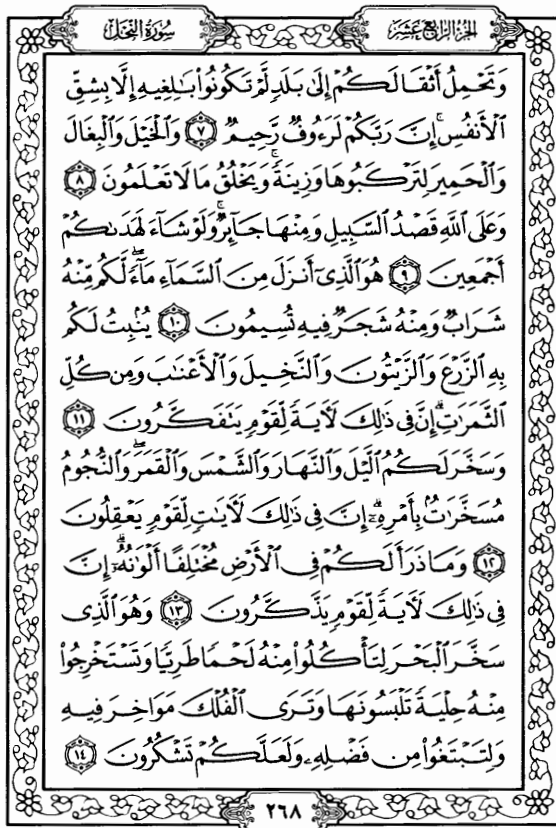 سُورَةُ النَّحْلِ الجُزْءُ الرَّابِعَ عَشَرَ
وَتَحْمِلُ أَثْقَالَكُمْ إِلَىٰ بَلَدٍ لَّمْ تَكُونُوا۟ بَـٰلِغِيهِ إِلَّا بِشِقِّ
ٱلْأَنفُسِ ۚ إِنَّ رَبَّكُمْ لَرَءُوفٌ رَّحِيمٌ ٧ وَٱلْخَيْلَ وَٱلْبِغَالَ
وَٱلْحَمِيرَ لِتَرْكَبُوهَا وَزِينَةً ۚ وَيَخْلُقُ مَا لَا تَعْلَمُونَ ٨
وَعَلَى ٱللَّهِ قَصْدُ ٱلسَّبِيلِ وَمِنْهَا جَآئِرٌ ۚ وَلَوْ شَآءَ لَهَدَىٰكُمْ
أَجْمَعِينَ ٩ هُوَ ٱلَّذِىٓ أَنزَلَ مِنَ ٱلسَّمَآءِ مَآءً ۖ لَّكُم مِّنْهُ
شَرَابٌ وَمِنْهُ شَجَرٌ فِيهِ تُسِيمُونَ ١٠ يُنۢبِتُ لَكُم
بِهِ ٱلزَّرْعَ وَٱلزَّيْتُونَ وَٱلنَّخِيلَ وَٱلْأَعْنَـٰبَ وَمِن كُلِّ
ٱلثَّمَرَٰتِ ۗ إِنَّ فِى ذَٰلِكَ لَـَٔايَةً لِّقَوْمٍ يَتَفَكَّرُونَ ١١
وَسَخَّرَ لَكُمُ ٱلَّيْلَ وَٱلنَّهَارَ وَٱلشَّمْسَ وَٱلْقَمَرَ ۖ وَٱلنُّجُومُ
مُسَخَّرَٰتٌۢ بِأَمْرِهِۦٓ ۗ إِنَّ فِى ذَٰلِكَ لَـَٔايَـٰتٍ لِّقَوْمٍ يَعْقِلُونَ
١٢ وَمَا ذَرَأَ لَكُمْ فِى ٱلْأَرْضِ مُخْتَلِفًا أَلْوَٰنُهُۥٓ ۗ إِنَّ
فِى ذَٰلِكَ لَـَٔايَةً لِّقَوْمٍ يَذَّكَّرُونَ ١٣ وَهُوَ ٱلَّذِى
سَخَّرَ ٱلْبَحْرَ لِتَأْكُلُوا۟ مِنْهُ لَحْمًا طَرِيًّا وَتَسْتَخْرِجُوا۟
مِنْهُ حِلْيَةً تَلْبَسُونَهَا وَتَرَى ٱلْفُلْكَ مَوَاخِرَ فِيهِ
وَلِتَبْتَغُوا۟ مِن فَضْلِهِۦ وَلَعَلَّكُمْ تَشْكُرُونَ ١٤
٢٦٨